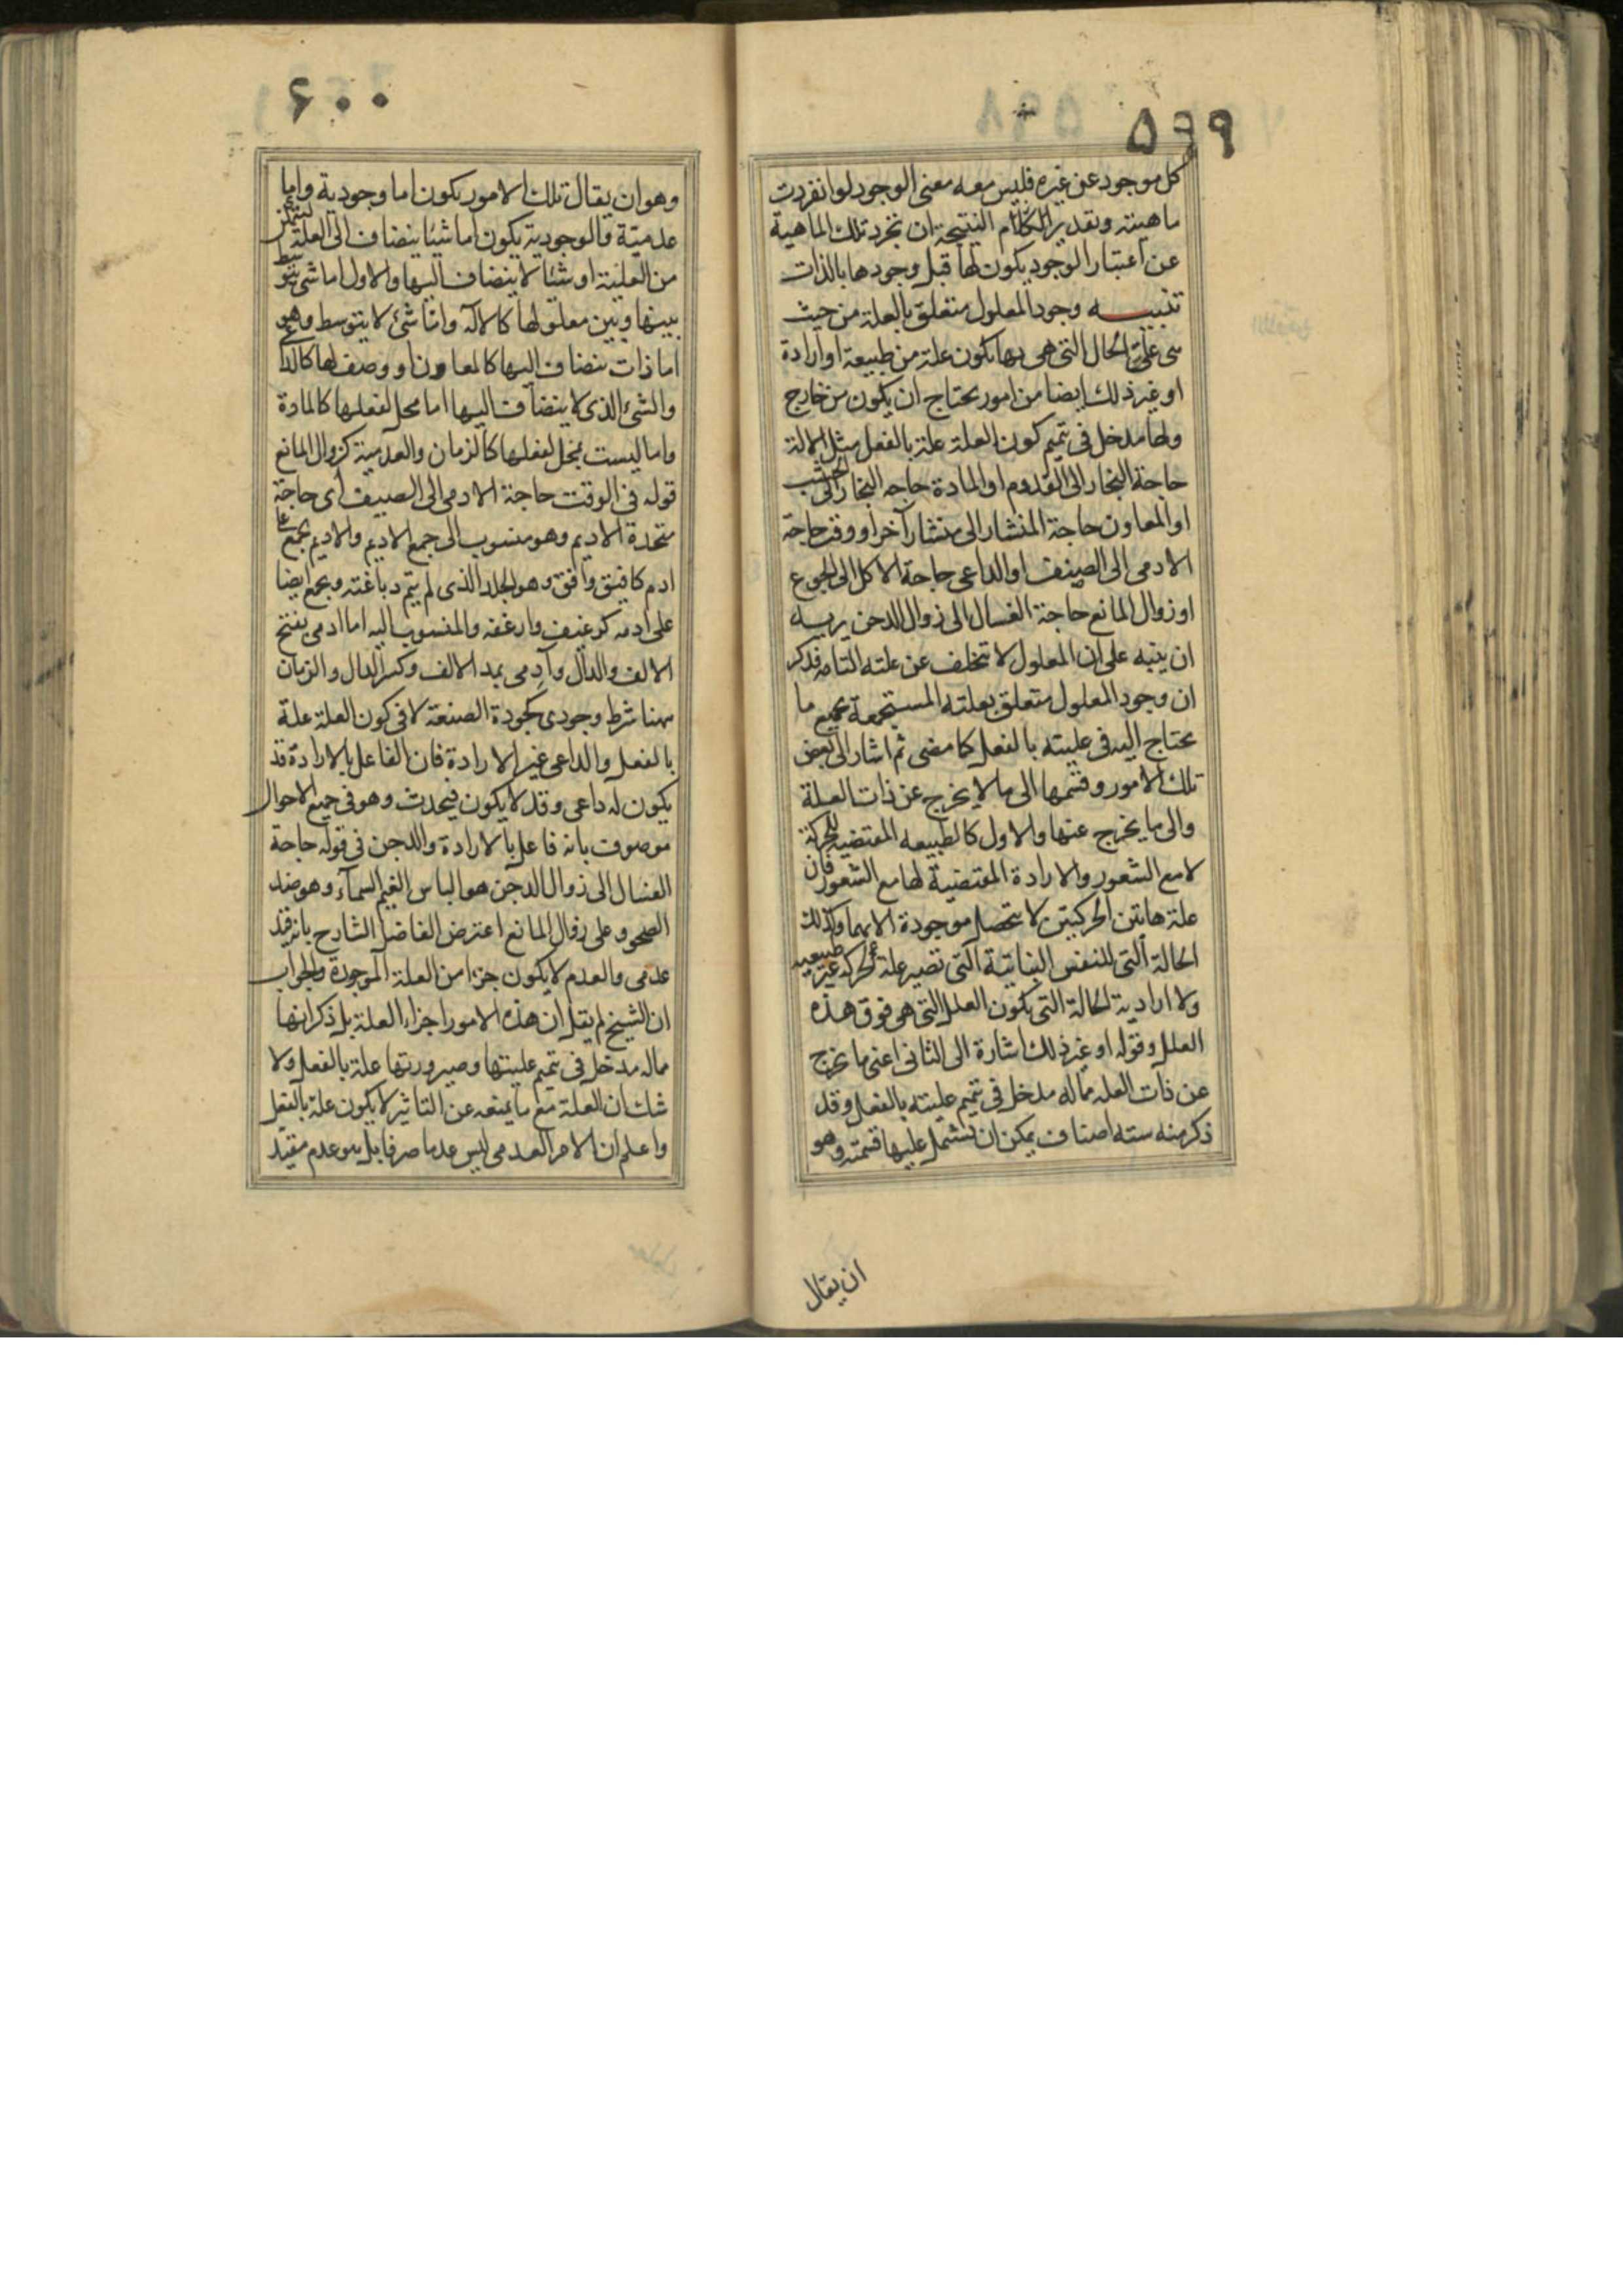 ۵۹۹
كل موجود عن غيره فليس معه معنى الوجود لو انفردت
ماهيته وتقدير الكلام النتيجة ان تجرد تلك الماهية
عن اعتبار الوجود يكون لها قبل وجودها بالذات
تنبيه وجود المعلول متعلق بالعلة من حيث
هى على الحال التى هى بها يكون علة من طبيعة او ارادة
او غير ذلك ايضا من امور يحتاج ان يكون من خارج
ولها مدخل فى تتميم كون العلة علة بالفعل مثل الالة
حاجة النجار الى القدوم او المادة حاجه النجار الى الخشب
او المعاون حاجة المنشار الى منشار آخر او وقت حاجة
الادمى الى الصيف او الداعى حاجة الاكل الى الجوع
او زوال المانع حاجة الغسال الى زوال الدجن يريد
ان ينبه على ان المعلول لا تتخلف عن علته التامه فذكر
ان وجود المعلول متعلق بعلته المستجمعة بجميع ما
يحتاج اليه فى عليته بالفعل كما مضى ثم اشار الى بعض
تلك الامور وقسمها الى ما لا يخرج عن ذات العلة
والى ما يخرج عنها والاول كالطبيعه المقتضيه للحركة
لا مع الشعور والارادة المقتضية لها مع الشعور فان
علة هاتين الحركتين لا تحصل موجودة الا بهما وكذلك
الحالة التى للنفس النباتية التى تصير علة لحركه غير طبيعيه
ولا ارادية الحالة التى يكون العلل التى هى فوق هذه
العلل وقوله او غير ذلك اشارة الى الثانى اعنى ما يخرج
عن ذات العله مما له مدخل فى تتميم عليته بالفعل وقد
ذكر منه سته اصناف يمكن ان تشتمل عليها قسمته وهو
ان يقال
۶۰۰
وهو ان يقال تلك الامور يكون اما وجودية واما
عدمية فالوجودية يكون اما شيئا ينضاف الى العلة
من العلية او شئا لا ينضاف اليها والاول اما شئ يتوسط
بينها وبين معلولها كالآلة واما شئ لا يتوسط وهو
اما ذات ينضاف اليها كالمعاون او وصف لها كالداعى
والشئ الذى لا ينضاف اليها اما محل لفعلها كالمادة
واما ليست بمحل لفعلها كالزمان والعدمية كزوال المانع
قوله فى الوقت حاجة الادمى الى الصيف اى حاجة
متخذة الاديم وهو منسوب الى جمع الاديم والاديم يجمع على
ادم كافيق وافق وهو الجلد الذى لم يتم دباغته ويجمع ايضا
على ادمه كرغيف وارغفه والمنسوب اليه اما ادمى بفتح
الالف والدال وآدمى بمد الالف وكسر الدال والزمان
ههنا شرط وجودى كجودة الصنعة لا فى كون العلة علة
بالفعل والداعى غير الارادة فان الفاعل بالارادة قد
يكون له داعى وقد لا يكون فيحدث وهو فى جميع الاحوال
موصوف بانه فاعل بالارادة والدجن فى قوله حاجة
الغسال الى زوال الدجن هو الباس الغيم السماء وهو ضد
الصحو وعلى زوال المانع اعترض الفاضل الشارح بانه قيد
عدمى والعدم لا يكون جزءا من العلة الموجودة والجواب
ان الشيخ لم يقل ان هذه الامور اجزاء العلة بل ذكر انها
مما له مدخل فى تتميم عليتها وصيرورتها علة بالفعل ولا
شك ان العلة مع ما يمنعه عن التاثير لا يكون علة بالفعل
واعلم ان الامر العدمى ليس عدما صرفا بل هو عدم مقيد